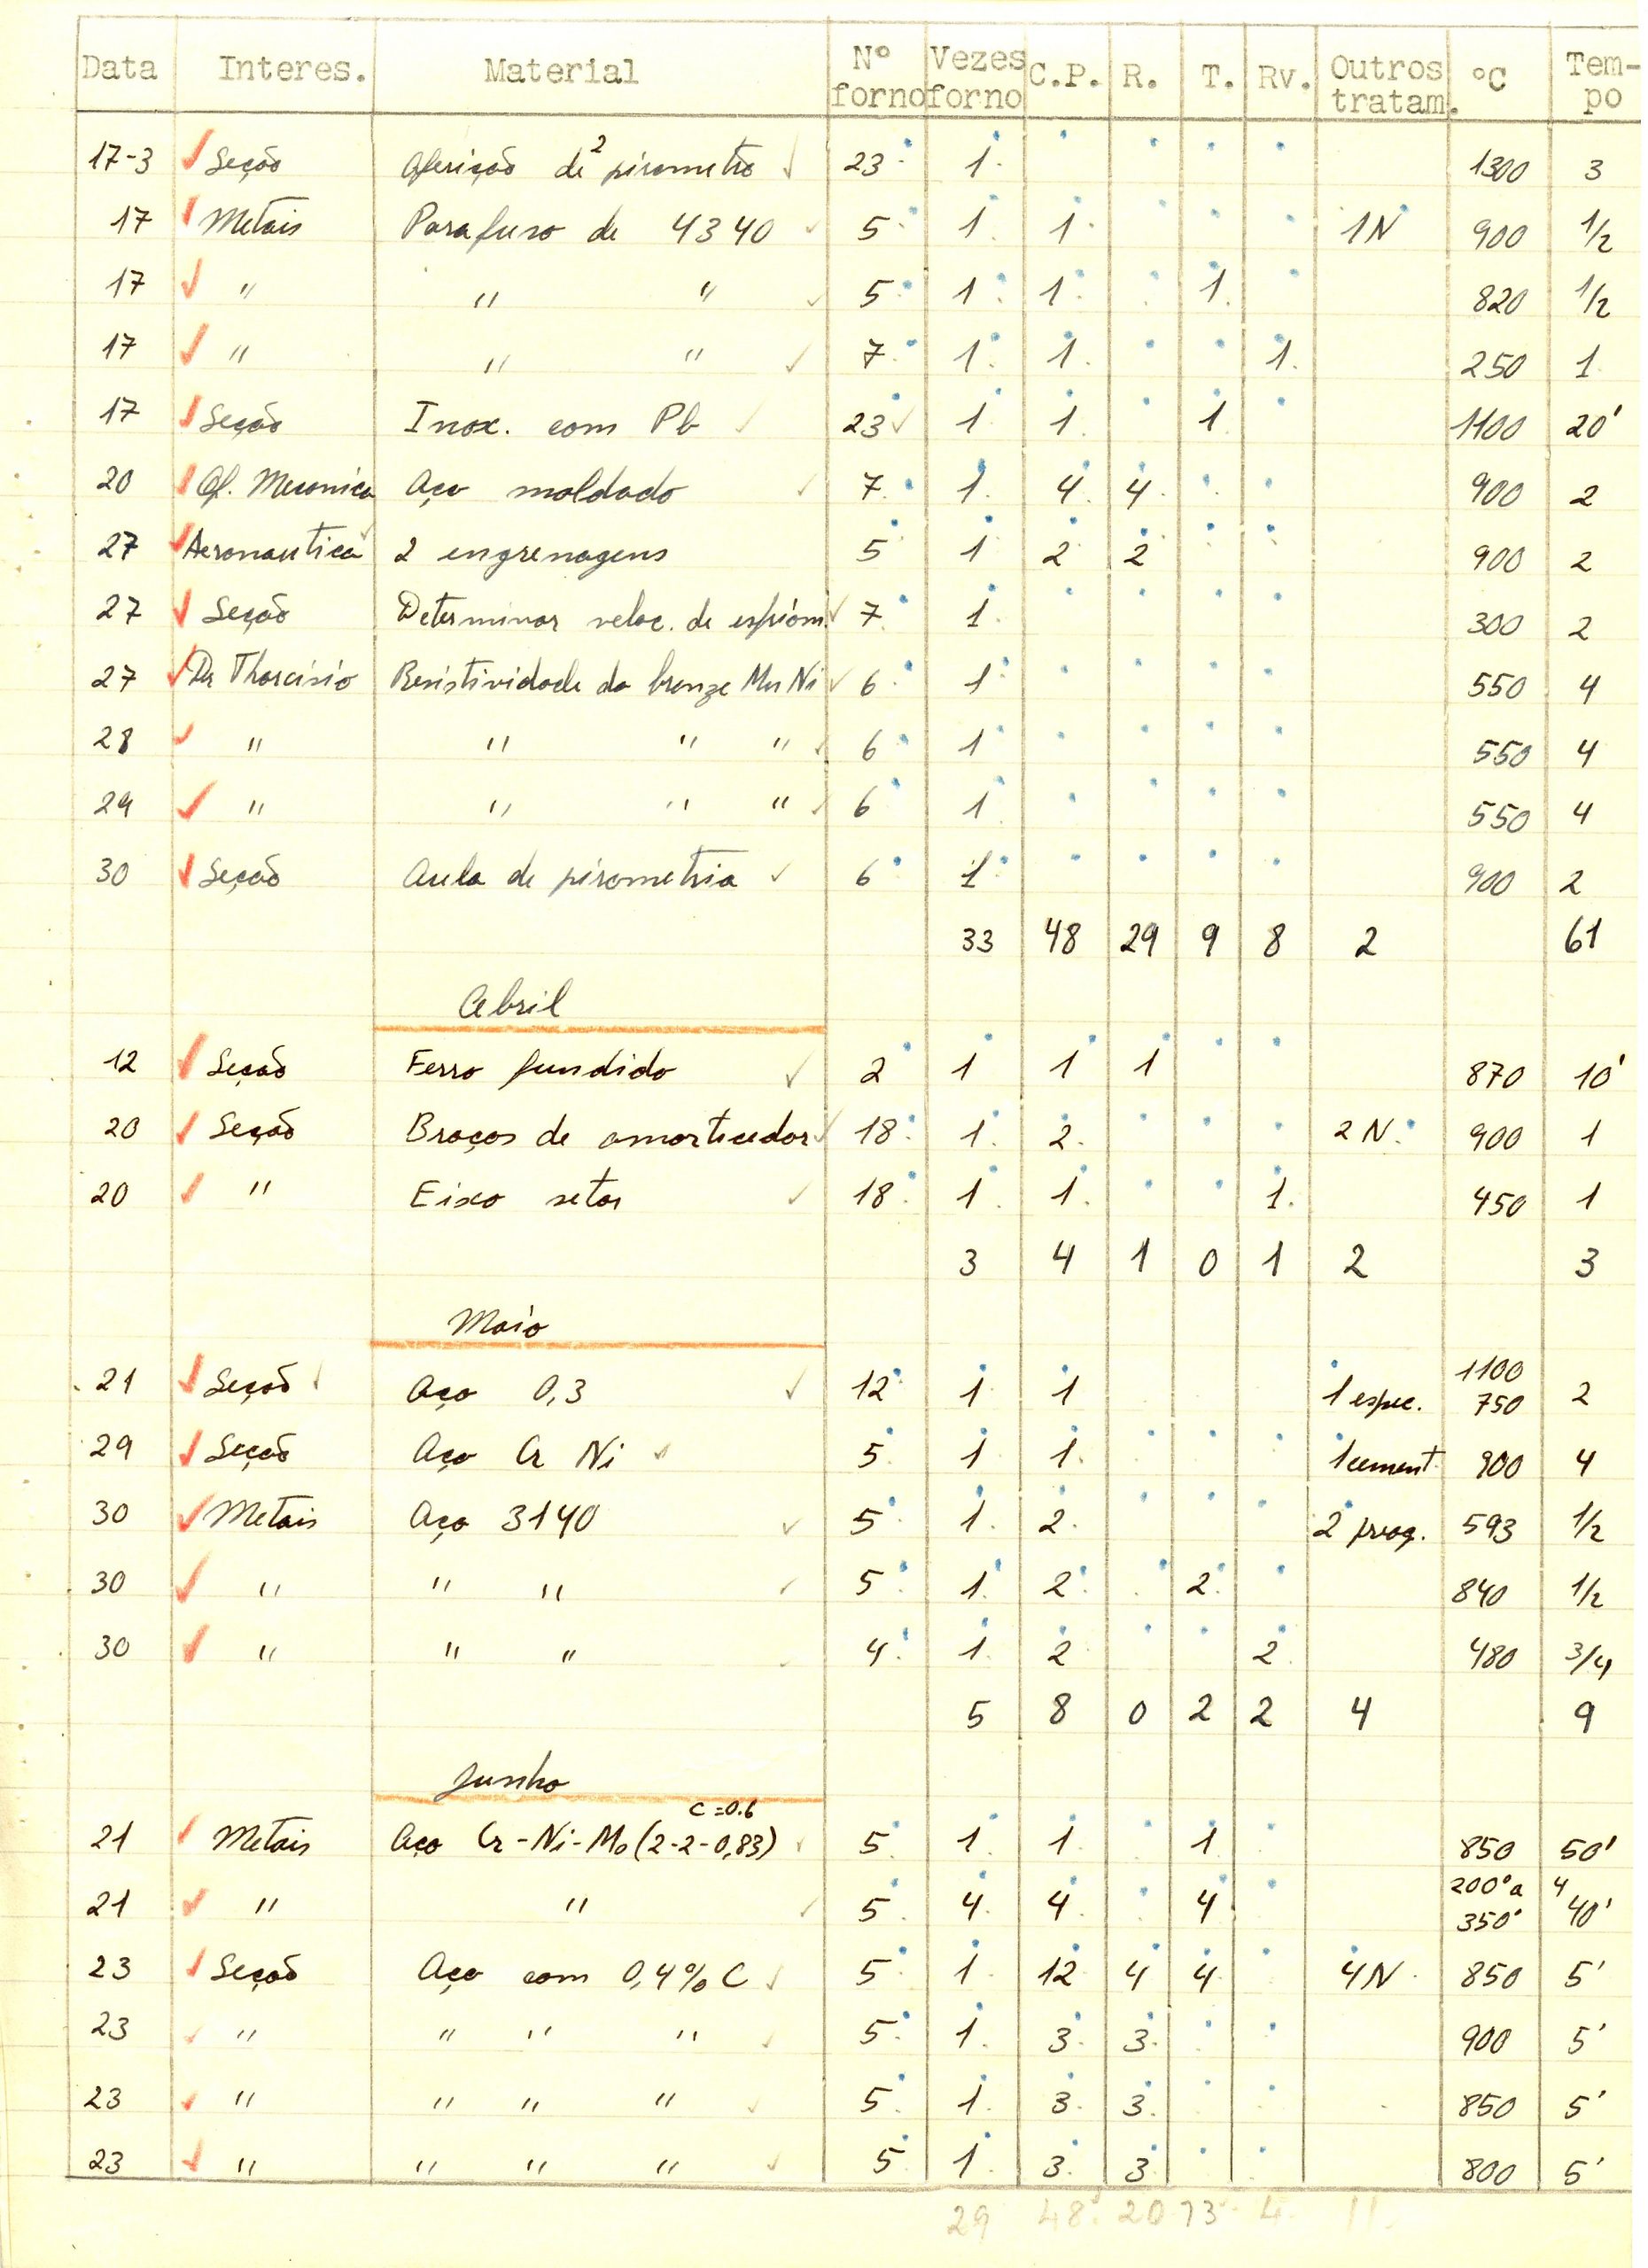 Data Interes. Material Nº forno Vezes forno C.P. R. T. Rv. Outros tratam. ºC Tempo
17-3 Seção Aferição de 2 pirometro 23 1 1300 3
17 Metais Parafuso de 4340 5 1 1 1N 900 1/2
17 " " " 5 1 1 1 820 1/2
17 " " " 7 1 1 1 250 1
17 Seção Inox. com Pb 23 1 1 1 1100 20'
20 Of. Mecanica Aço moldado 7 1 4 4 900 2
27 Aeronautica 2 engrenagens 5 1 2 2 900 2
27 Seção Determinar veloc. de esfriam. 7 1 300 2
27 Dr Tharcisio Resistividade do bronze Mn Ni 6 1 550 4
28 " " " " 6 1 550 4
29 " " " " 6 1 550 4
30 Seção Aula de pirometria 6 1 900 2
33 48 29 9 8 2 61
Abril
12 Seção Ferro fundido 2 1 1 1 870 10'
20 Seção Braços de amortecedor 18 1 2 2 N. 900 1
20 " Eixo setor 18 1 1 1 450 1
3 4 1 0 1 2 3
Maio
21 Seção Aço 0,3 12 1 1 1 espec. 1100 750 2
29 Seção Aço Cr Ni 5 1 1 1 cement. 900 4
30 Metais Aço 3140 5 1 2 2 593 1/2
30 " " " 5 1 2 2 840 1/2
30 " " " 4 1 2 2 480 3/4
5 8 0 2 2 4 9
Junho
C=0.6
21 Metais Aço Cr-Ni-Mo (2-2-0,83) 5 1 1 1 850 50'
21 " " 5 4 4 4 200° a 350° 4 40'
23 Seção Aço com 0,4% C 5 1 12 4 4 4N 850 5'
23 " " " " 5 1 3 3 900 5'
23 " " " " 5 1 3 3 850 5'
23 " " " " 5 1 3 3 800 5'
29 48 20 13 4 11